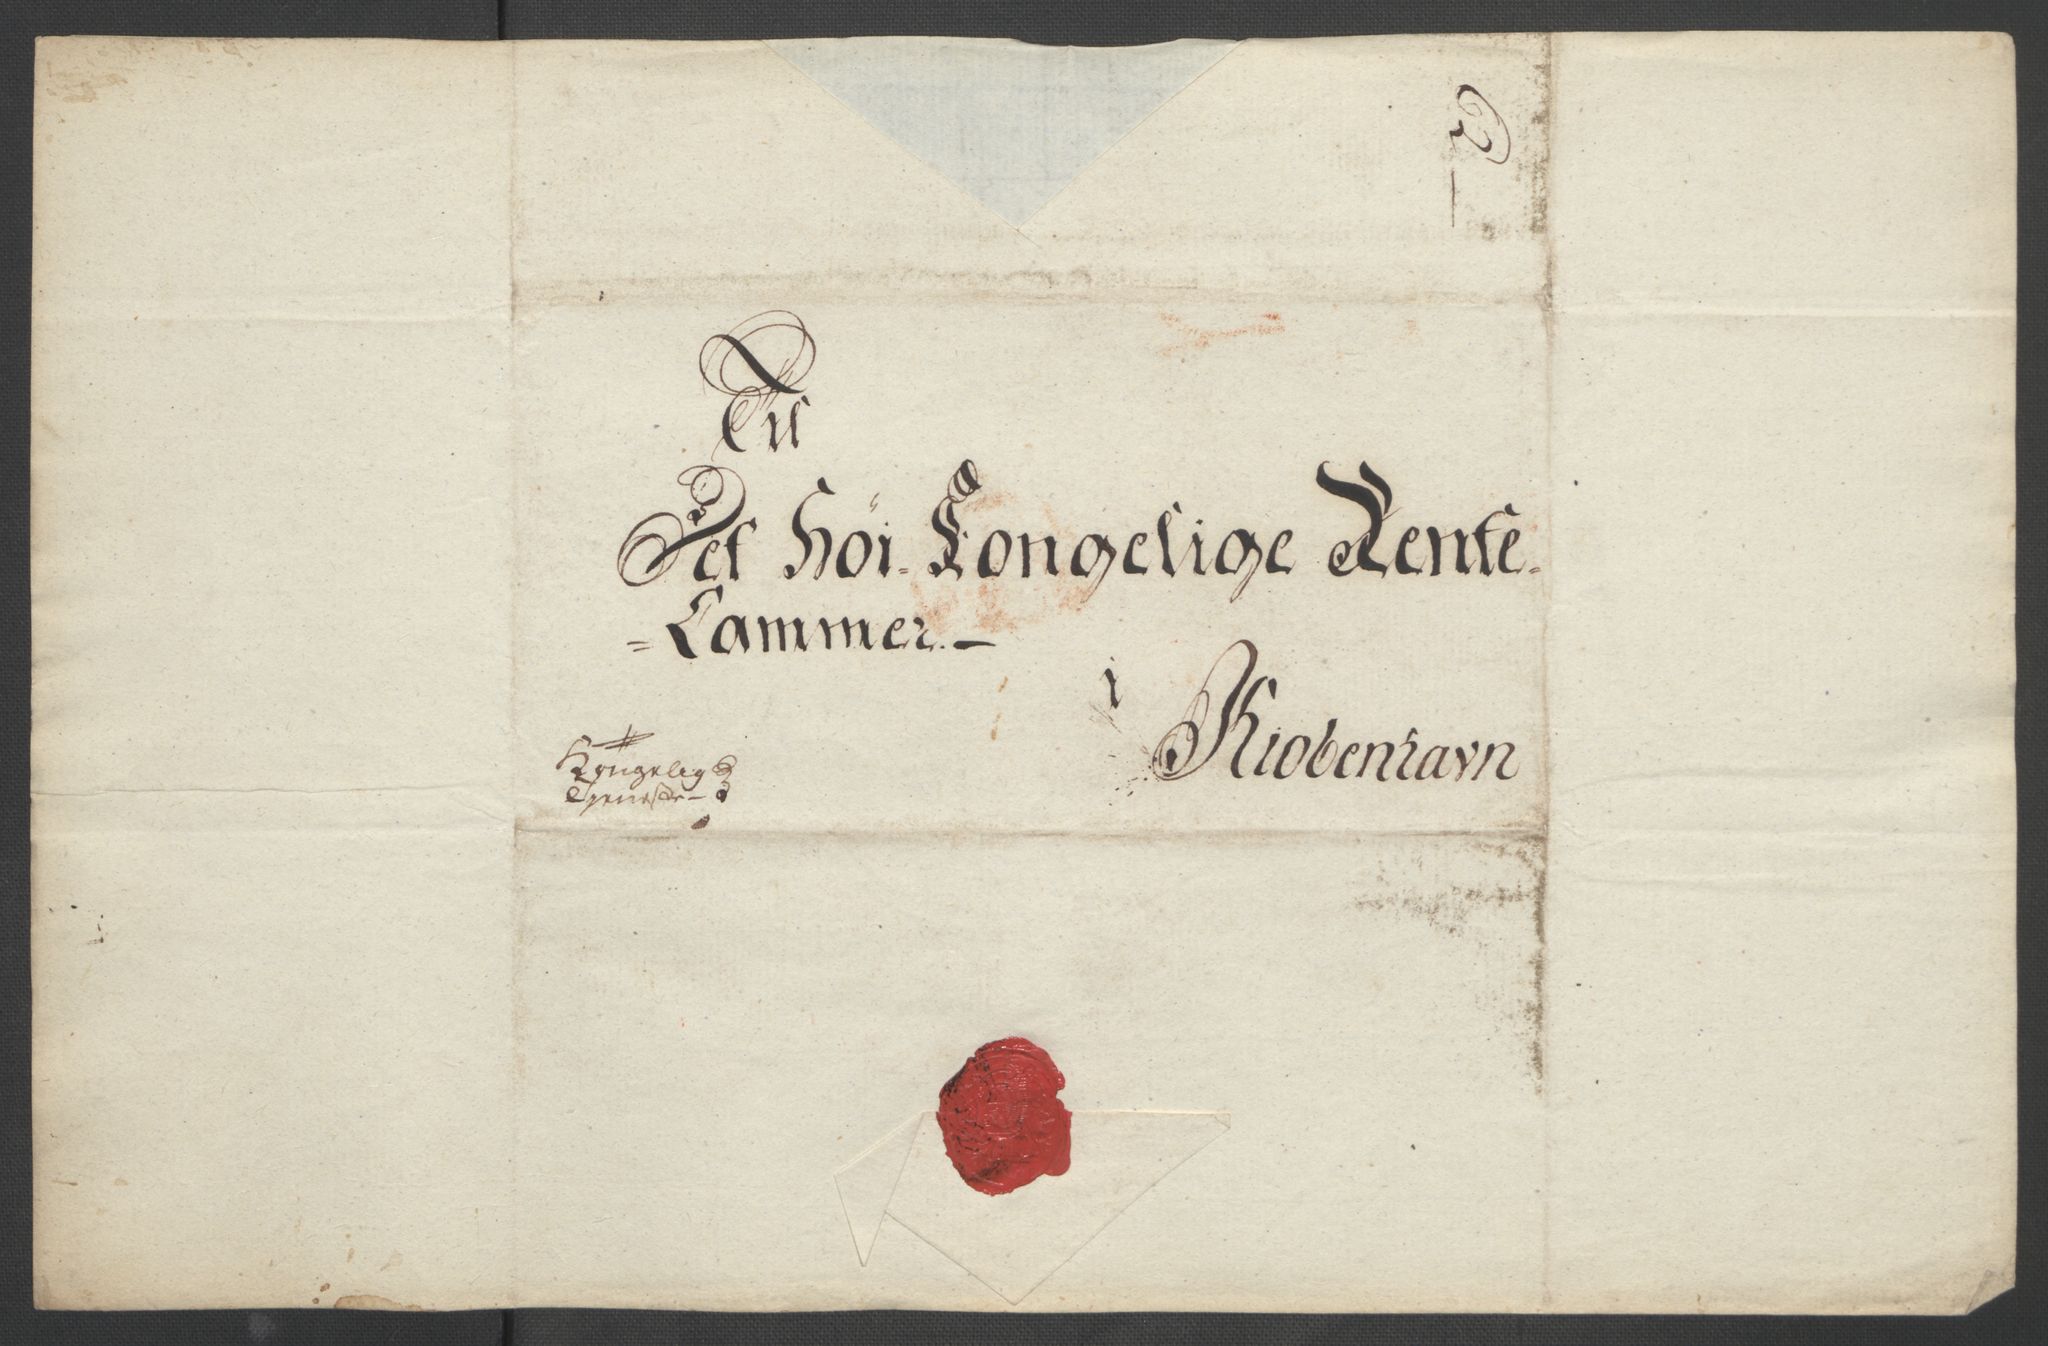 Til
Det Höi-Kongelige Rente-
=Cammer.-
i
Kiobenhavn
Kongelig
Tjeneste-